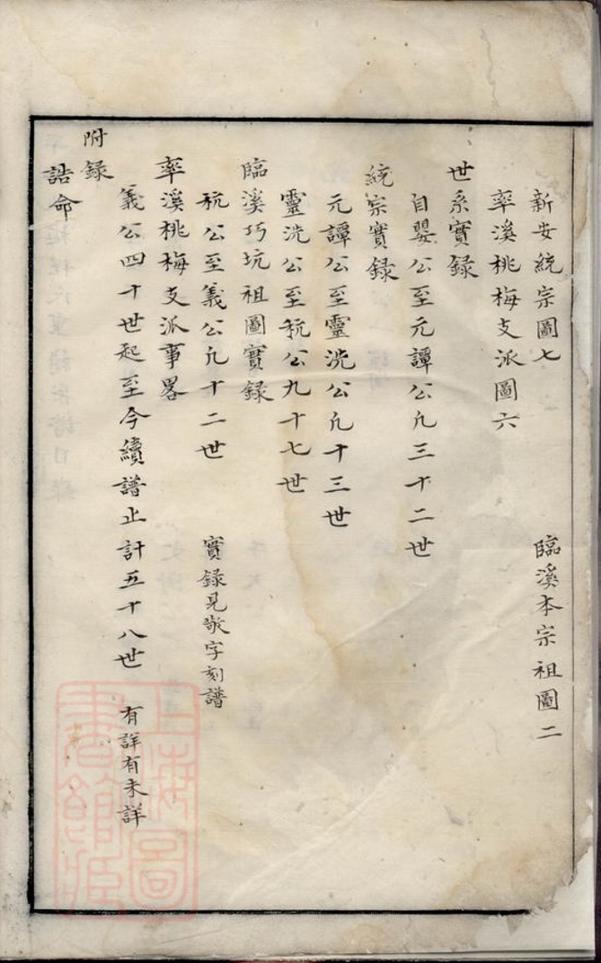 新安統宗圖七 臨溪本宗祖圖二
率溪桃梅支派圖六
世系實録
自嬰公至元譚公凢三十二世
統宗實録
元譚公至靈洗公凢十三世
靈洗公至秔公九十七世
臨溪巧坑祖圖實録
秔公至義公凢十二世 實録見敬字刻譜
率溪桃梅支派事畧
義公四十世起至今續譜止計五十八世 有詳有未詳
附録
誥命
上海圖書館藏